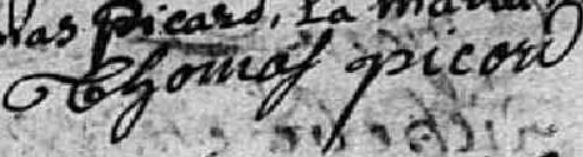 as picard, La mari
Thomas picard